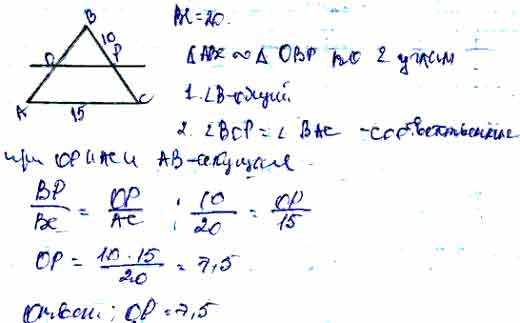 B
10
O
P
A
15
C
BC=20.
△ABC ~ △OBP по 2 углам
1. ∠B-общий
2. ∠BOP = ∠BAC - соответственные
при OP||AC и AB-секущая
BP/BC = OP/AC ; 10/20 = OP/15
OP = 10·15/20 = 7,5
Ответ: OP = 7,5